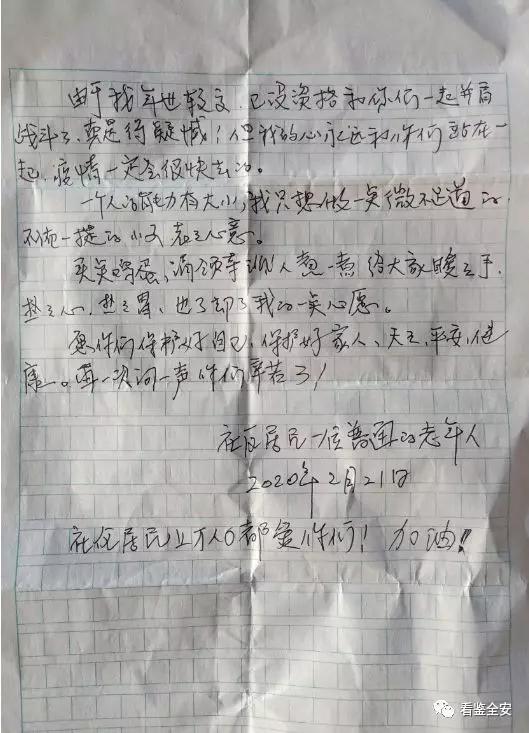 由于我年世较高,已没资格和你们一起并肩
战斗了,真是得疑憾;但我的心永远和你们站在一
起,疫情一定会很快去的。
一个人的能力有大小,我只想做一点微不足道的
不值一提的小又表之心意。
买点鸡蛋,请领导派人煮一煮给大家暖之手,
热之心,热之胃,也了却了我的一点心愿。
愿你们保护好自己,保护好家人、天天平安,健
康。再一次问一声你们辛苦了!
社区居民一位普通的老年人
2020年2月21日
社区居民上万人口都爱你们!加油!!
看鉴全安